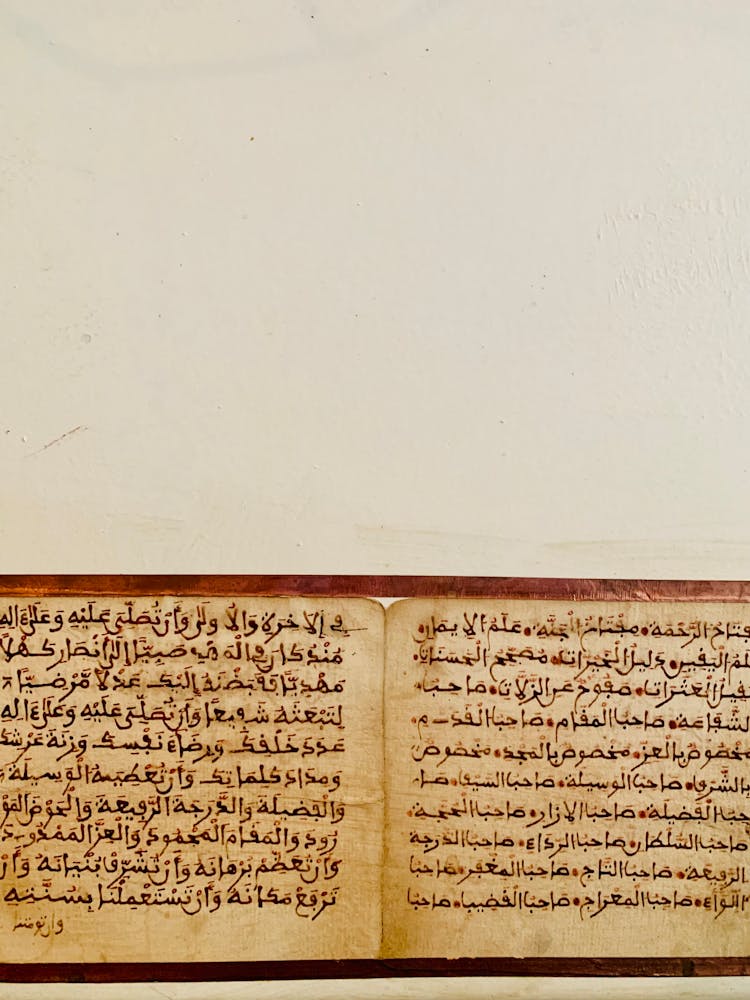 فتاح الرحمة • مفتاح الجنة • علم الايمان •
علم اليقين • دليل الخيرات • مصحح الحسنات •
مقيل العثرات • صفوح عن الزلات • صاحب
الشفاعة • صاحب المقام • صاحب القدم •
مخصوص بالعز • مخصوص بالمجد • مخصوص
بالشرف • صاحب الوسيلة • صاحب السيف • صا
حب الفضيلة • صاحب الازار • صاحب الحجة •
صاحب السلطان • صاحب الرداء • صاحب الدرجة
الرفيعة • صاحب التاج • صاحب المغفر • صاحب
اللواء • صاحب المعراج • صاحب القضيب • صاحب
في الاخرة والاولى وأن تصلي عليه وعلى ءاله
منذ كان في المهد صبيا إلى أن صار كهلا
مهديا فقبضته إليك عدلا مرضيا
لتبعثه شفيعا وأن تصلي عليه وعلى ءاله
عدد خلقك ورضاء نفسك وزنة عرشك
ومداد كلماتك وأن تعطيه الوسيلة
والفضيلة والدرجة الرفيعة والحوض المو
رود والمقام المحمود والعز الممدود
وأن تعظم برهانه وأن تشرف بنيانه وأن
ترفع مكانه وأن تستعملنا بسنته